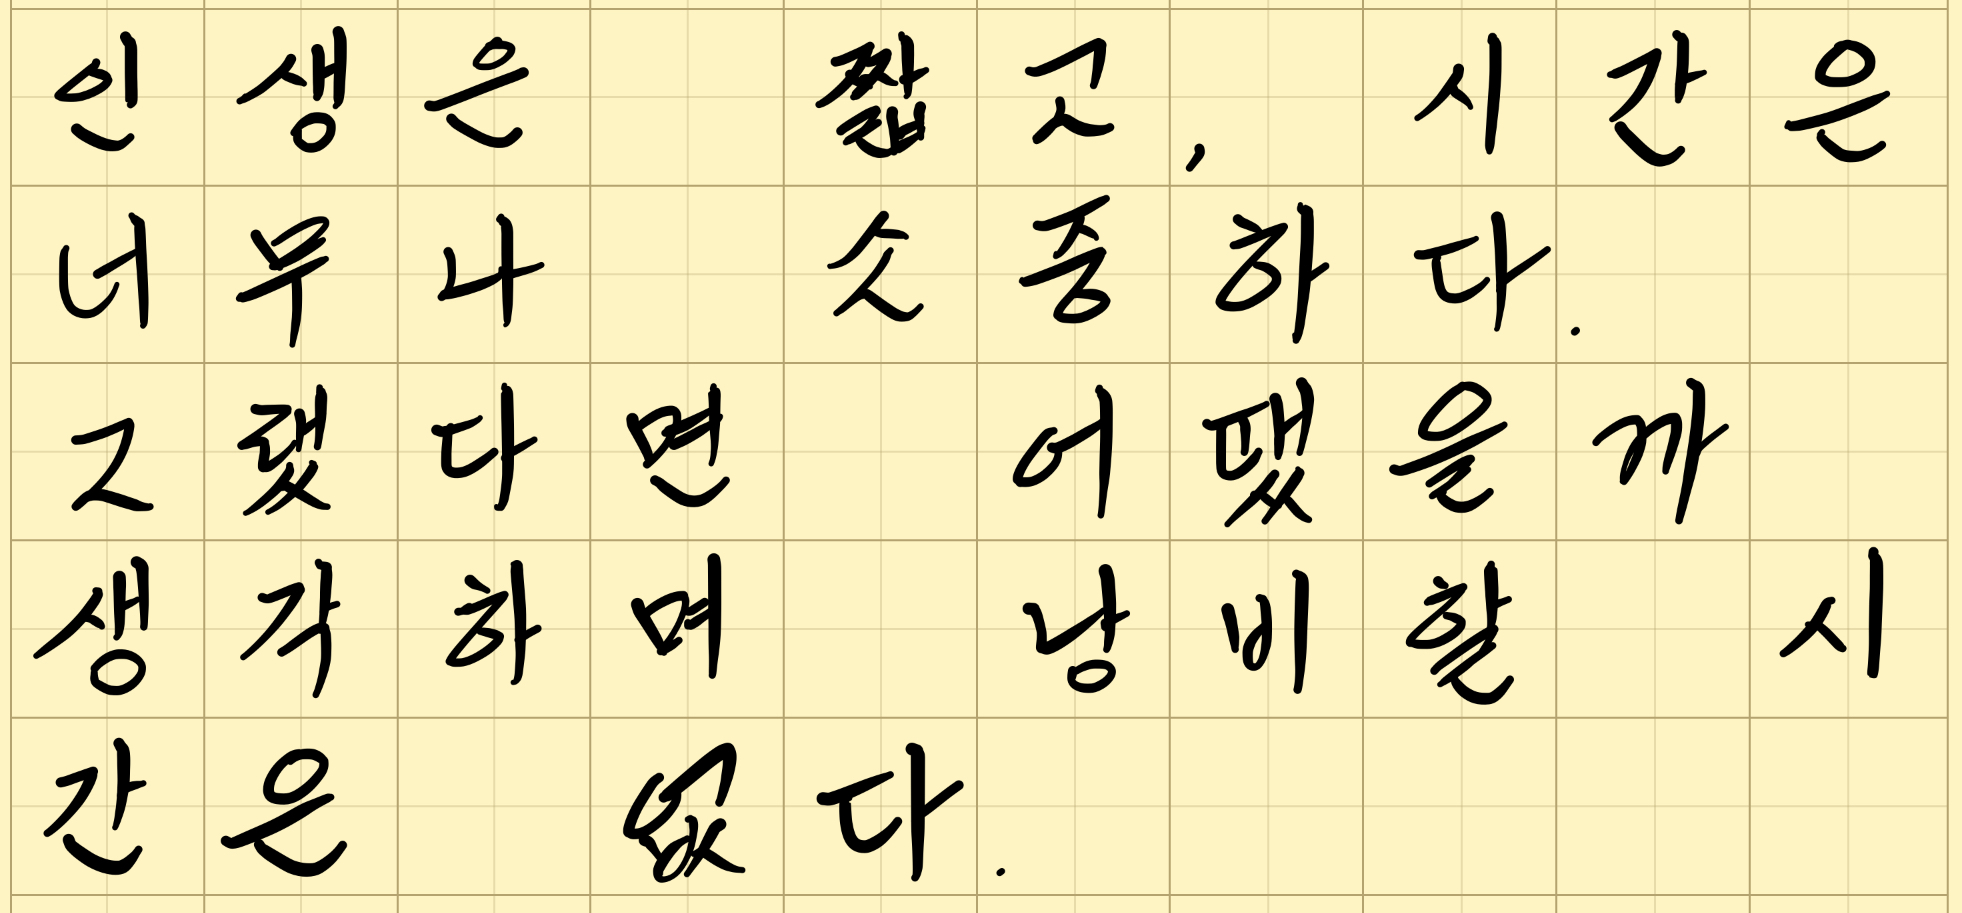 인생은 짧고, 시간은
너무나 소중하다.
그랬다면 어땠을까
생각하며 낭비할 시
간은 없다.